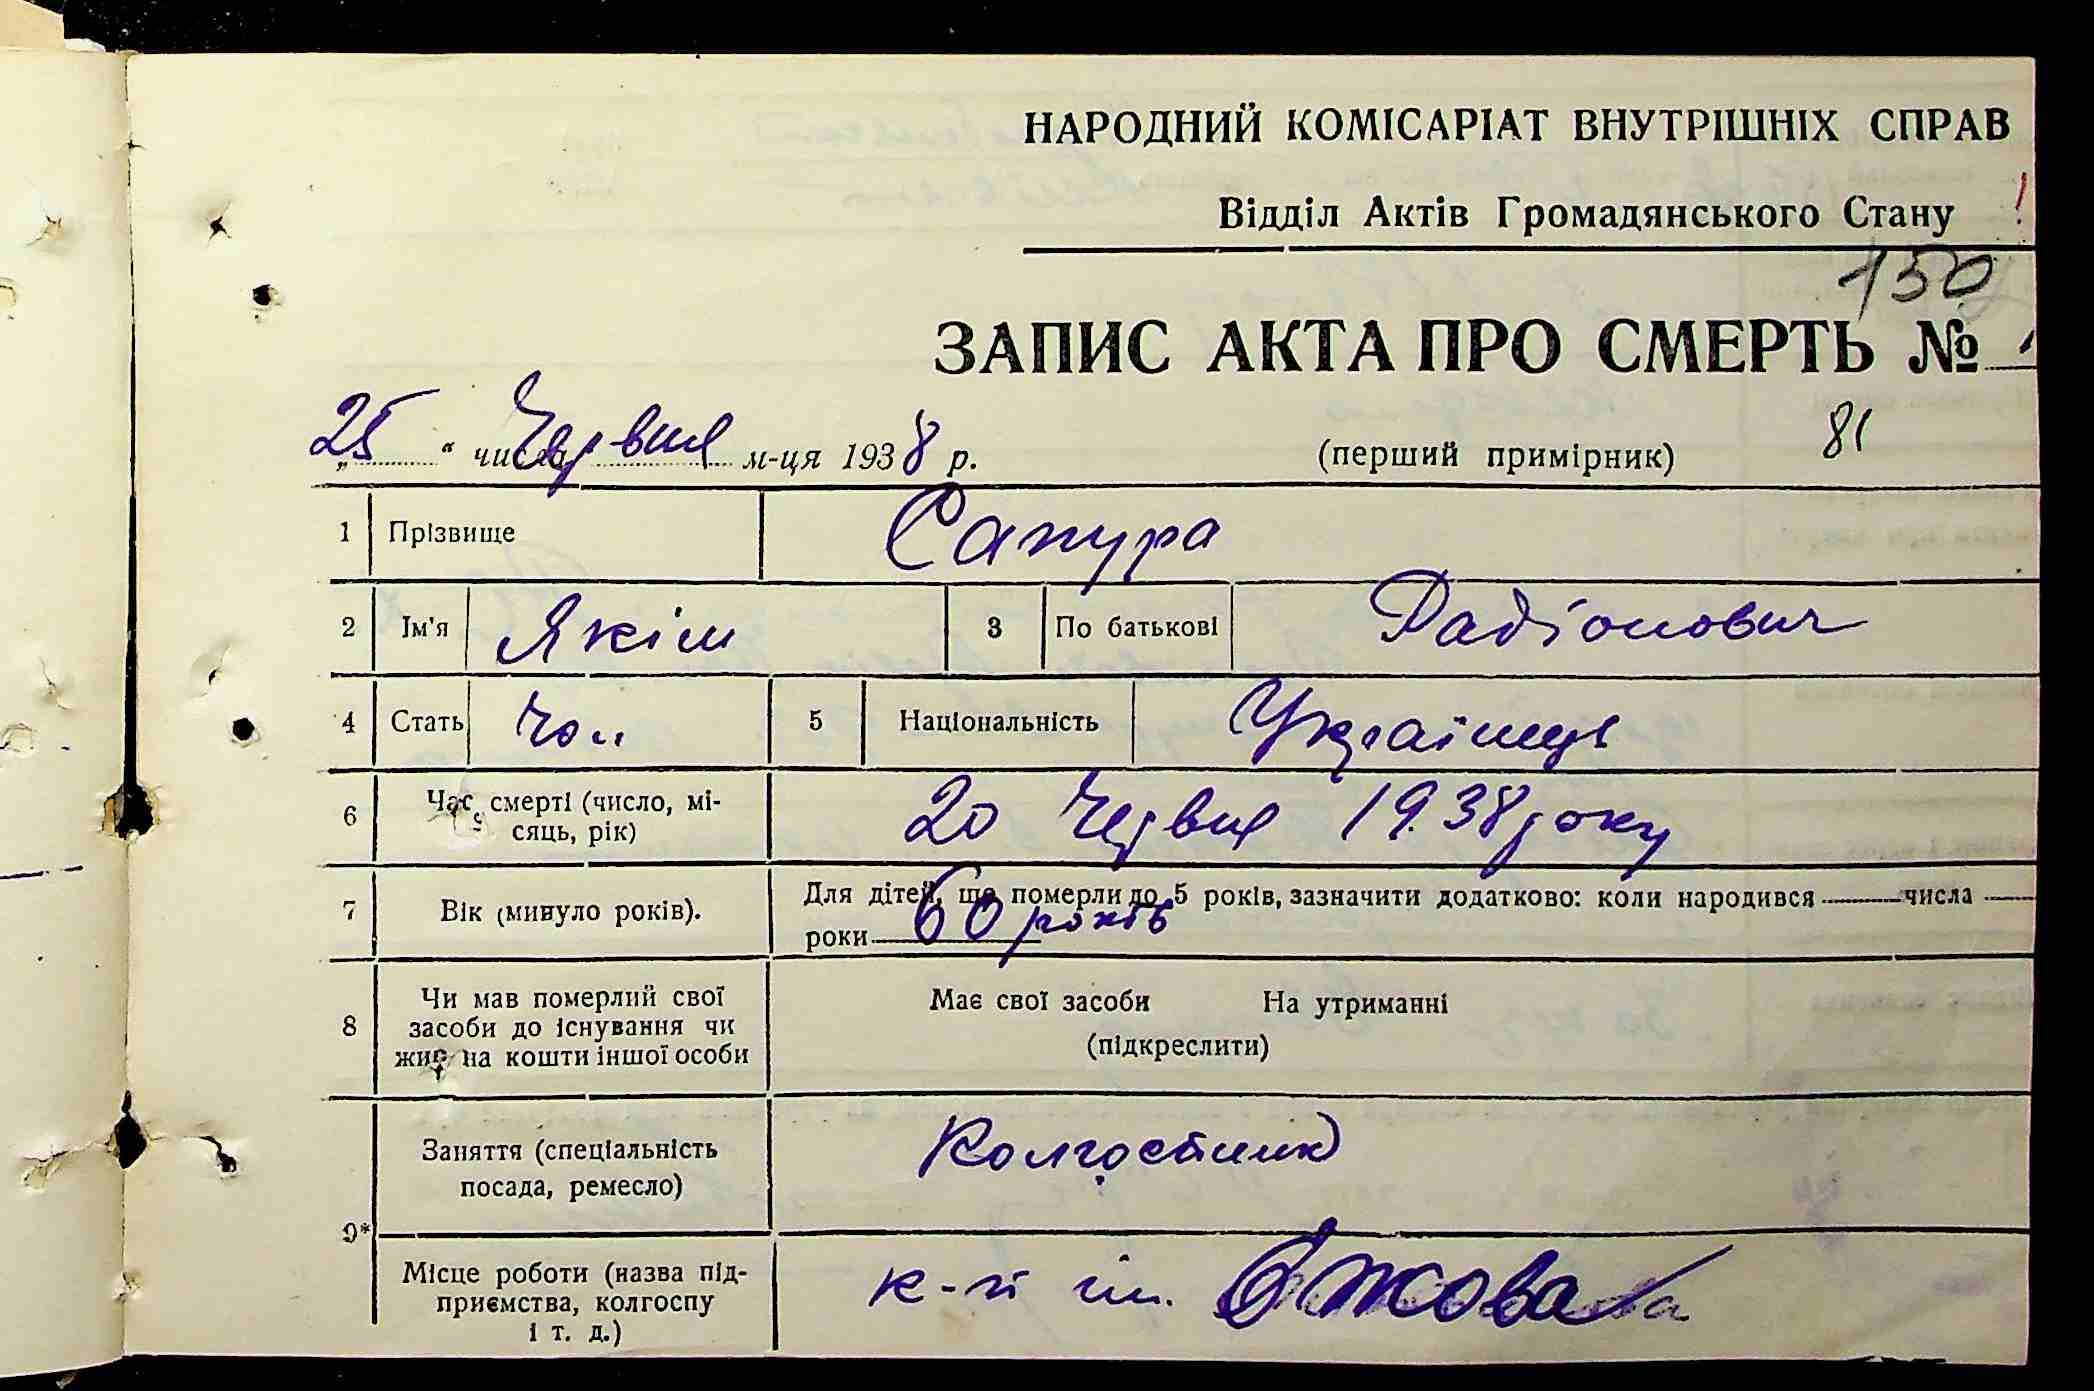 НАРОДНИЙ КОМІСАРІАТ ВНУТРІШНІХ СПРАВ
Відділ Актів Громадянського Стану !
150
ЗАПИС АКТА ПРО СМЕРТЬ №
„25“ числа Червня м-ця 1938 р.
(перший примірник) 81
1 Прізвище Сапура
2 Ім'я Якім 3 По батькові Радіонович
4 Стать чол. 5 Національність Українець
6 Час смерті (число, мі-
сяць, рік) 20 Червня 1938 року
7 Вік (минуло років). Для дітей, що померли до 5 років, зазначити додатково: коли народився числа
роки 60 років
8 Чи мав померлий свої
засоби до існування чи
жив на кошти іншої особи
Має свої засоби На утриманні
(підкреслити)
9*
Заняття (спеціальність
посада, ремесло) Колгоспник
Місце роботи (назва під-
приємства, колгоспу
і т. д.) к-п ім.